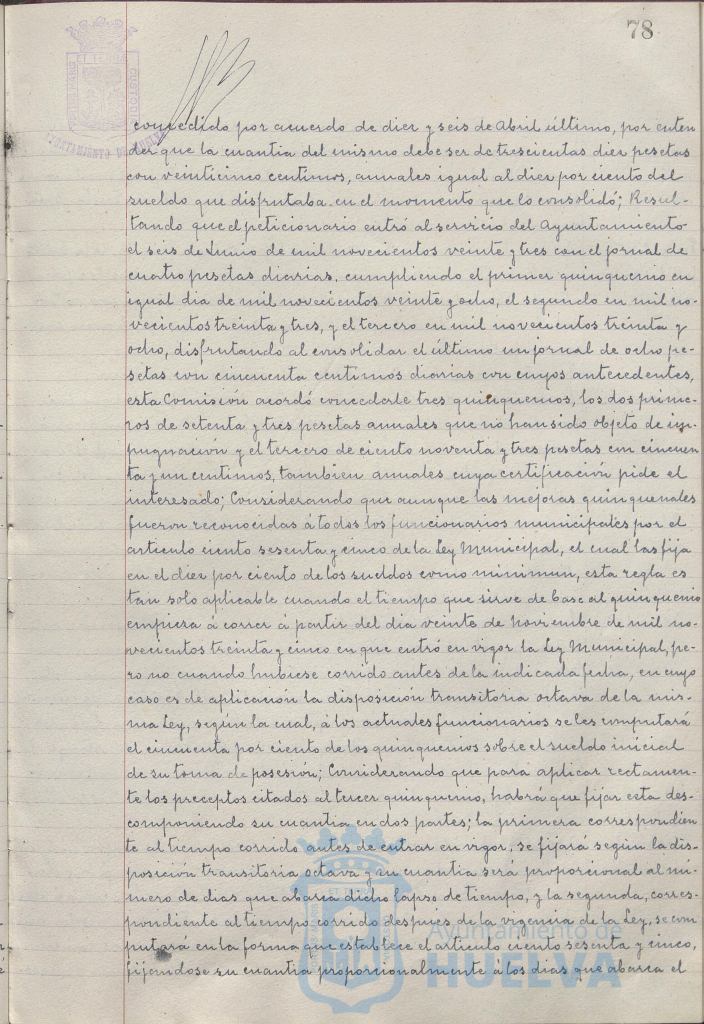 78
concedido por acuerdo de diez y seis de Abril último, por enten
der que la cuantia del mismo debe ser de trescientas diez pesetas
con veinticinco centimos, anuales igual al diez por ciento del
sueldo que disfrutaba en el momento que lo consolidó; Resul-
tando que el peticionario entró al servicio del Ayuntamiento
el seis de Junio de mil novecientos veinte y tres con el jornal de
cuatro pesetas diarias, cumpliendo el primer quinquenio en
igual dia de mil novecientos veinte y ocho, el segundo en mil no-
vecientos treinta y tres, y el tercero en mil novecientos treinta y
ocho, disfrutando al consolidar el último un jornal de ocho pe-
setas con cincuenta centimos diarias con cuyos antecedentes,
esta Comisión acordó concederle tres quinquenios, los dos prime-
ros de setenta y tres pesetas anuales que no han sido objeto de im-
pugnación y el tercero de ciento noventa y tres pesetas con cincuen
ta y un centimos, tambien anuales cuya certificación pide el
interesado; Considerando que aunque las mejoras quinquenales
fueron reconocidas á todos los funcionarios municipales por el
articulo ciento sesenta y cinco de la Ley Municipal, el cual las fija
en el diez por ciento de los sueldos como minimun, esta regla es
tan solo aplicable cuando el tiempo que sirve de base al quinquenio
empieza á correr á partir del dia veinte de noviembre de mil no-
vecientos treinta y cinco en que entró en vigor la Ley Municipal, pe-
ro no cuando hubiese corrido antes de la indicada fecha, en cuyo
caso es de aplicación la disposición transitoria octava de la mis-
ma Ley, según la cual, á los actuales funcionarios se les computará
el cincuenta por ciento de los quinquenios sobre el sueldo inicial
de su toma de posesión; Considerando que para aplicar rectamen-
te los preceptos citados al tercer quinquenio, habrá que fijar esta des-
componiendo su cuantia en dos partes; la primera correspondien
te al tiempo corrido antes de entrar en vigor, se fijará según la dis-
posición transitoria octava y su cuantia será proporcional al nú-
mero de dias que abarca dicho lapso de tiempo, y la segunda, corres-
pondiente al tiempo corrido despues de la vigencia de la Ley, se com
putará en la forma que establece el articulo ciento sesenta y cinco,
fijandose su cuantia proporcionalmente á los dias que abarca el
Ayuntamiento de
HUELVA